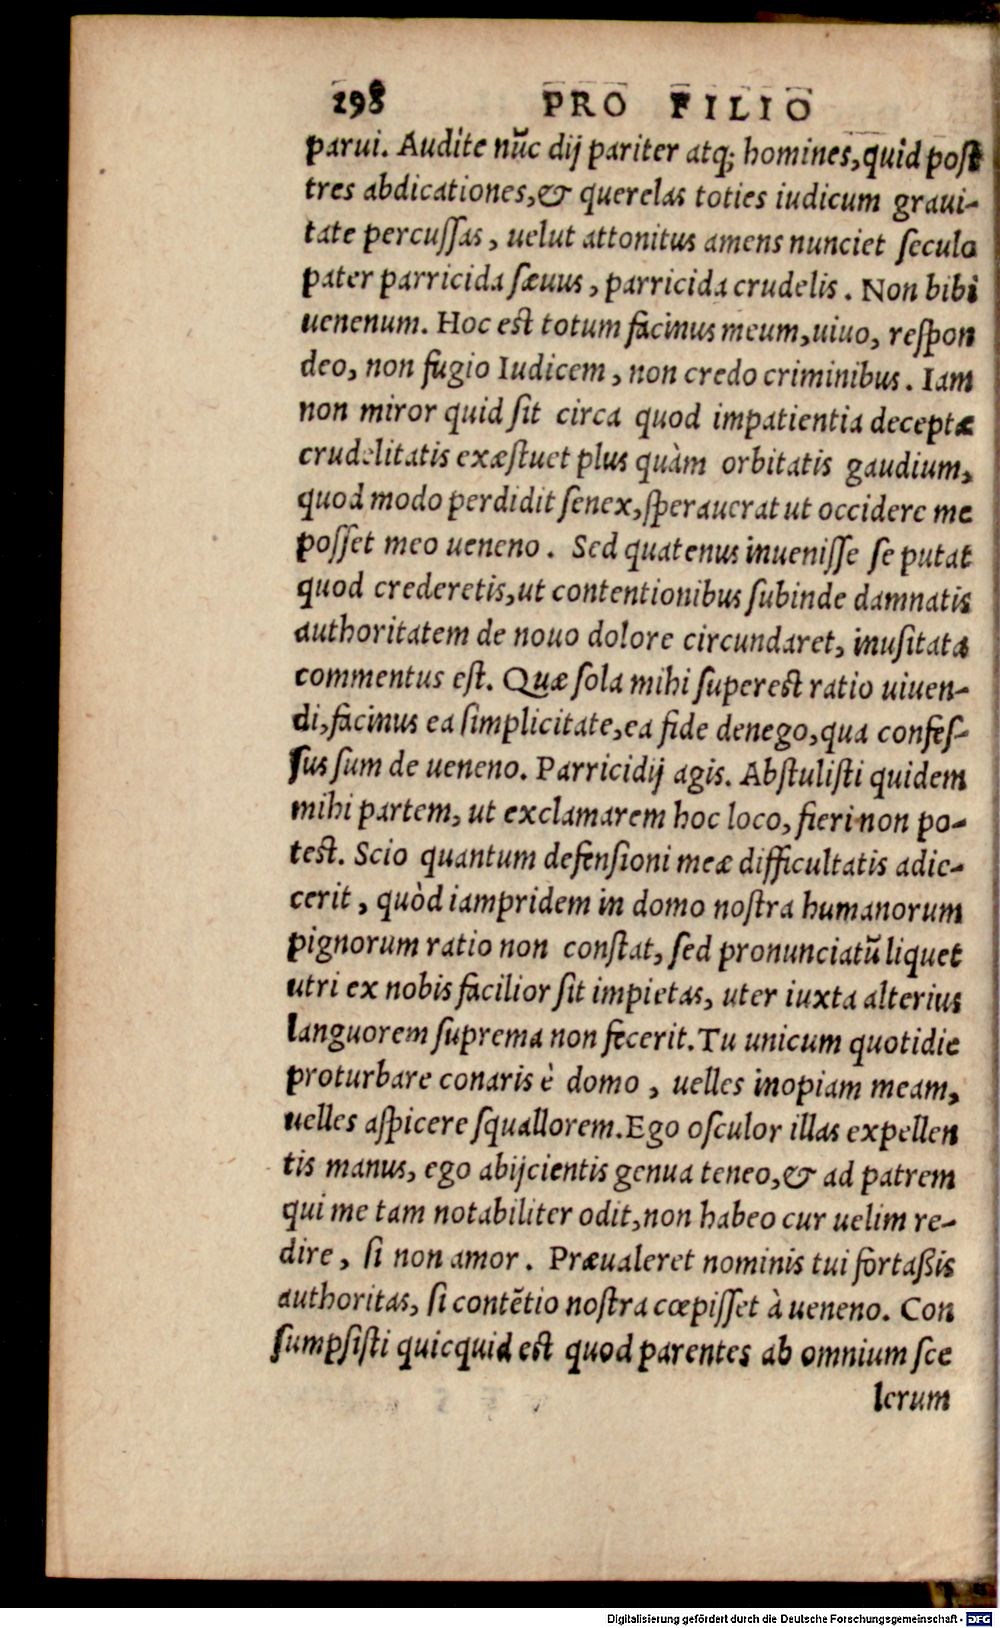 298 PRO FILIO
parui. Audite nũc dij pariter atq; homines, quid post
tres abdicationes, & querelas toties iudicum graui-
tate percussas, uelut attonitus amens nunciet secula
pater parricida sæuus, parricida crudelis. Non bibi
uenenum. Hoc est totum facinus meum, uiuo, respon
deo, non fugio Iudicem, non credo criminibus. Iam
non miror quid sit circa quod impatientia deceptæ
crudelitatis exæstuet plus quàm orbitatis gaudium,
quod modo perdidit senex, sperauerat ut occidere me
posset meo ueneno. Sed quatenus inuenisse se putat
quod crederetis, ut contentionibus subinde damnatis
authoritatem de nouo dolore circundaret, inusitata
commentus est. Quæ sola mihi superest ratio uiuen-
di, facinus ea simplicitate, ea fide denego, qua confes-
sus sum de ueneno. Parricidij agis. Abstulisti quidem
mihi partem, ut exclamarem hoc loco, fieri non po-
test. Scio quantum defensioni meæ difficultatis adie-
cerit, quòd iampridem in domo nostra humanorum
pignorum ratio non constat, sed pronunciatũ liquet
utri ex nobis facilior sit impietas, uter iuxta alterius
languorem suprema non fecerit. Tu unicum quotidie
proturbare conaris è domo, uelles inopiam meam,
uelles aspicere squallorem. Ego osculor illas expellen
tis manus, ego abijcientis genua teneo, & ad patrem
qui me tam notabiliter odit, non habeo cur uelim re-
dire, si non amor. Præualeret nominis tui fortaßis
authoritas, si contẽtio nostra cœpisset à ueneno. Con
sumpsisti quicquid est quod parentes ab omnium sce
lerum
Digitalisierung gefördert durch die Deutsche Forschungsgemeinschaft - DFG